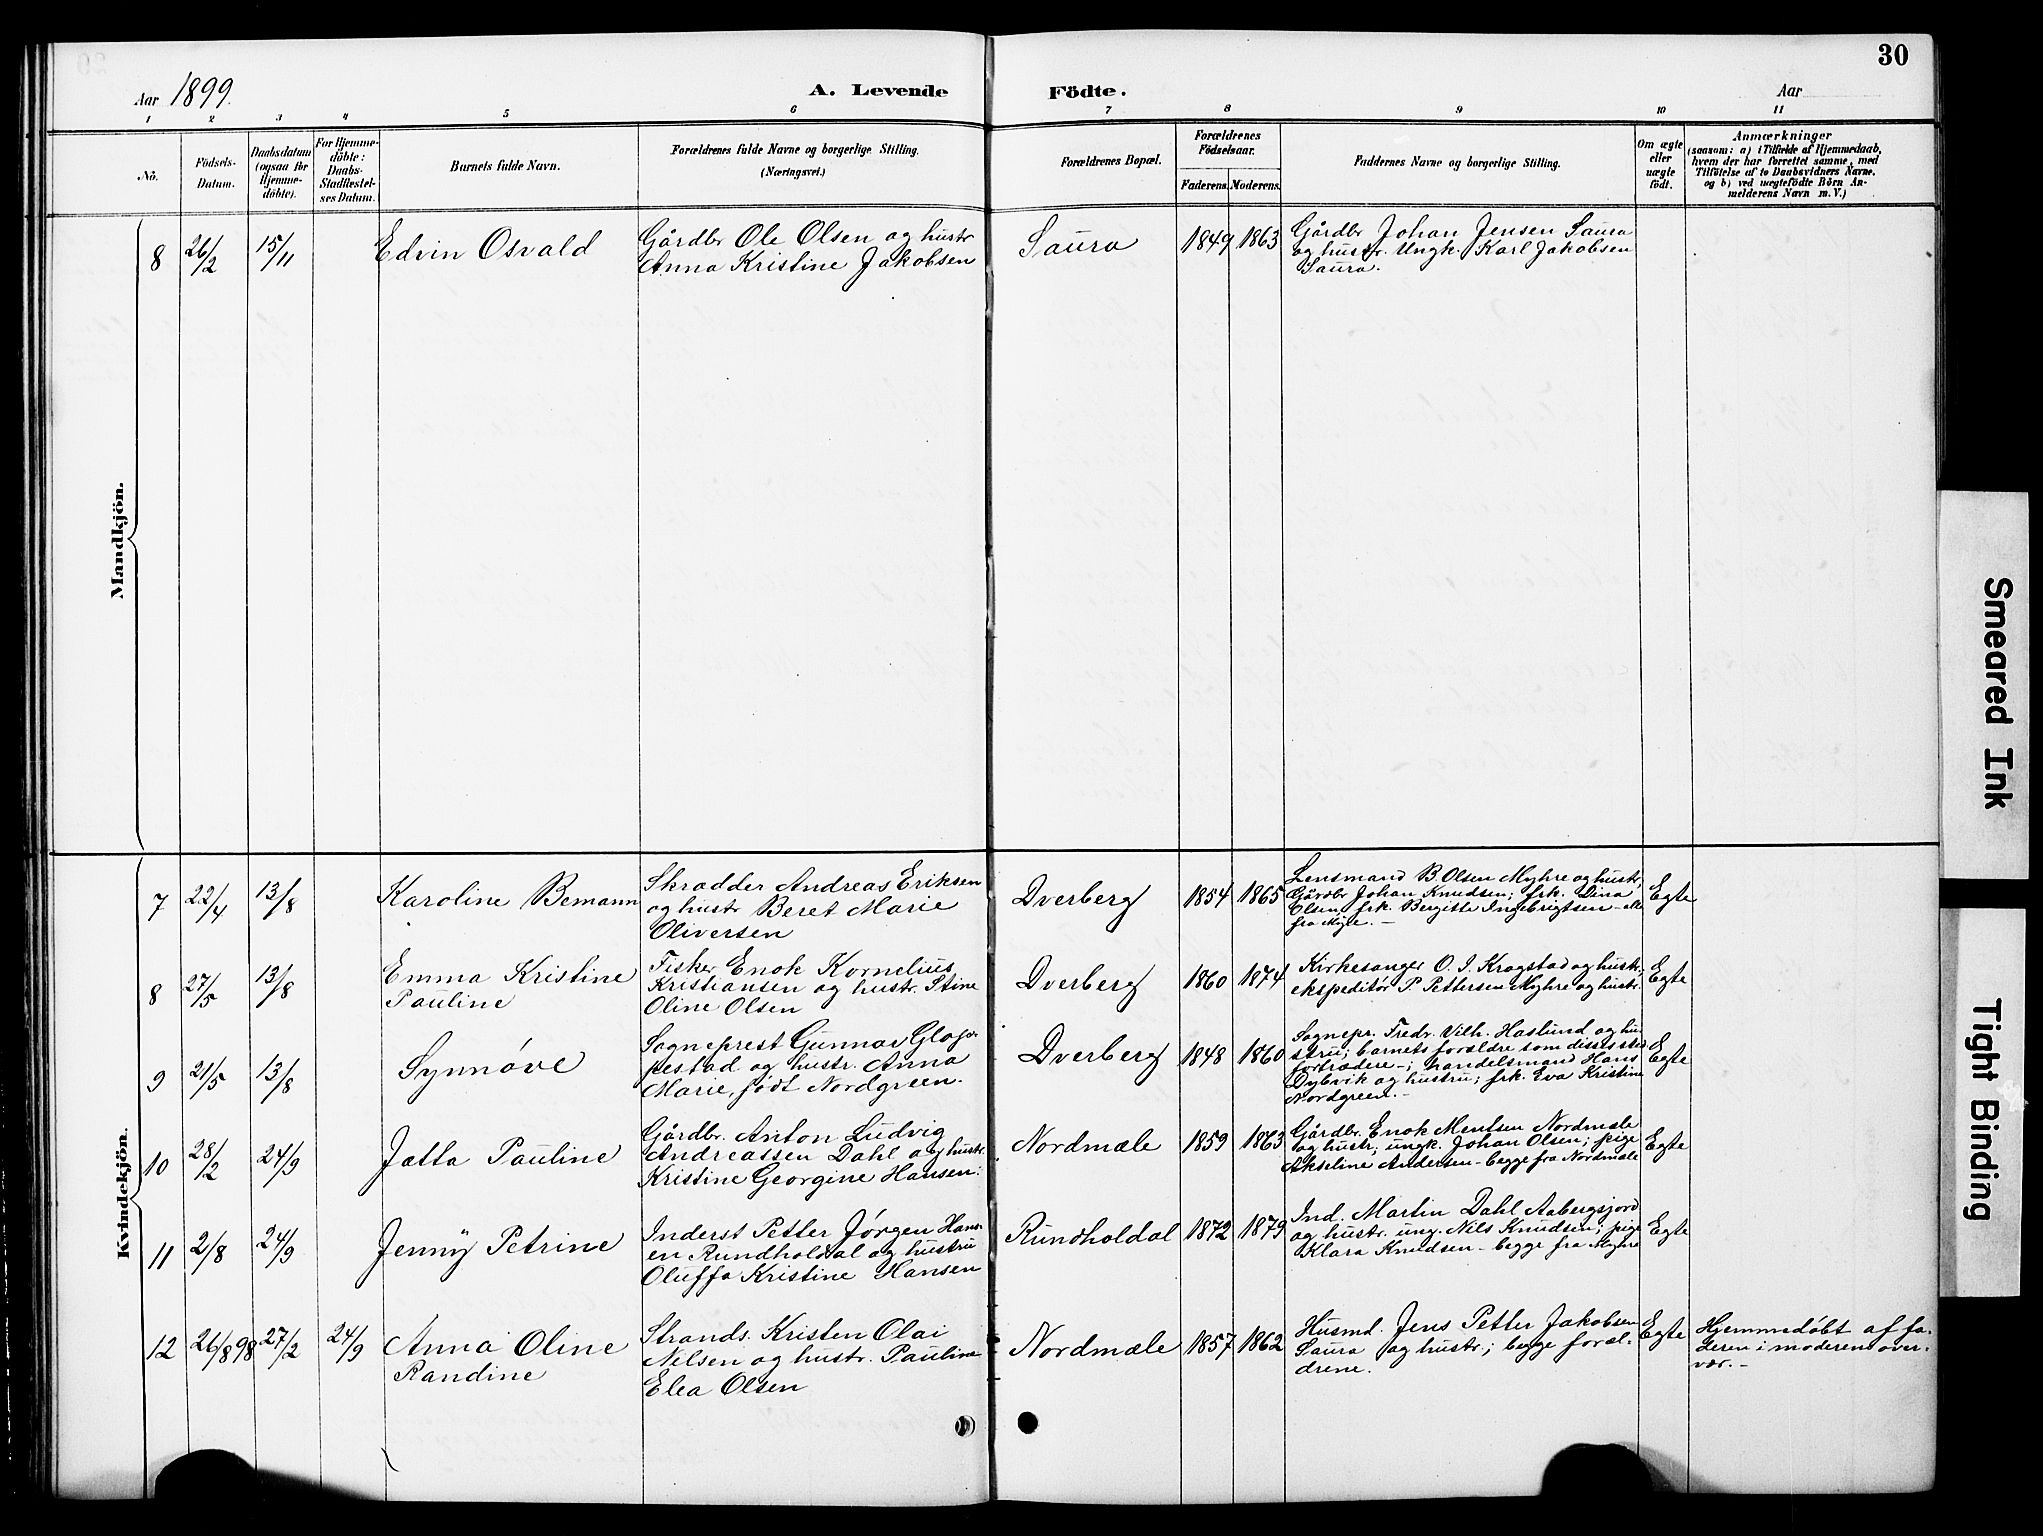 30
Aar 1899.
A. Levende Födte.
Aar
1 2 3 4 5 6 7 8 9 10 11
No.
Födsels-
Datum.
Daabsdatum
(ogsaa for
Hjemme-
döbte).
For Hjemme-
döbte:
Daabs-
Stadfæstel-
ses Datum.
Barnets fulde Navn.
Forældrenes fulde Navne og borgerlige Stilling.
(Næringsvei.)
Forældrenes Bopæl.
Forældrenes
Födselsaar.
Faderens. Moderens.
Faddernes Navne og borgerlige Stilling.
Om ægte
eller
uægte
födt.
Anmærkninger
(saasom: a) i Tilfælde af Hjemmedaab,
hvem der har forrettet samme, med
Tilföielse af to Daabsvidners Navne,
og b) ved uægtefödte Börn An-
melderens Navn m. V.)
Mandkjön.
8 26/2 15/11
Edvin Osvald
Gårdbr Ole Olsen og hustr
Anna Kristine Jakobsen
Saura
1849 1863
Gårdbr Johan Jensen Saura
og hustr. Ungk. Karl Jakobsen
Saura.
Kvindekjön.
7 22/4 13/8
Karoline Bemann
Skrædder Andreas Eriksen
og hustr Beret Marie
Oliversen
Dverberg
1854 1865
Lensmand B. Olsen Myhre og hustr,
Gårdbr Johan Knudsen; frk. Dina
Olsen, frk. Bergitte Ingebrigtsen - alle
fra Myre. -
Egte
8 27/5 13/8
Emma Kristine
Pauline
Fisker Enok Kornelius
Kristiansen og hustr. Stine
Oline Olsen
Dverberg
1860 1874
Kirkesanger O. J. Kragstad og hustr.;
ekspeditör P. Pettersen Myhre og hustr.
Egte
9 21/5 13/8
Synnøve
Sogneprest Gunnar Glop-
pestad og hustr. Anna
Marie, født Nordgreen.
Dverberg
1848 1860
Sognepr. Fredr. Vilh. Haslund og hu-
stru; barnets forældre som disses sted
fortrædere -; handelsmand Hans
Dybvik og hustru; frk. Eva Kristine
Nordgreen. -
Egte
10 28/2 24/9
Jatta Pauline
Gårdbr. Anton Ludvig
Andreassen Dahl og hustr.
Kristine Georgine Hansen.
Nordmæle
1859 1863
Gårdbr. Enok Mentsen Nordmæle
og hustr; ungk. Johan Olsen; pige
Akseline Andersen - begge fra Nordmæle
Egte
11 2/8 24/9
Jenny Petrine
Inderst Petter Jørgen Hans-
en Rundholdal og hustru
Oluffa Kristine Hansen
Rundholdal
1872 1879
Ind. Martin Dahl Aabergsjord
og hustr. ung. Nils Knudsen; pige
Klara Knudsen - begge fra Myhre
Egte
12 26/8 98 27/2 24/9
Anna Oline
Randine
Strands. Kristen Olai
Nelsen og hustr. Pauline
Elea Olsen
Nordmæle
1857 1862
Husmd. Jens Petter Jakobsen
Saura og hustr.; begge foræl-
drene.
Egte
Hjemmedøbt af fa-
deren i moderens over-
vær. -
Smeared Ink
Tight Binding